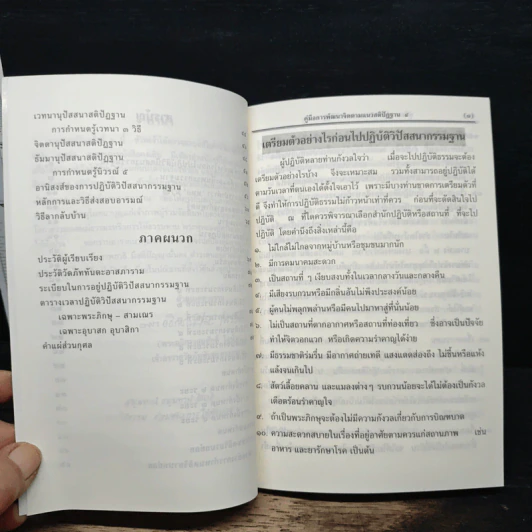 เวทนานุปัสสนาสติปัฏฐาน
การกำหนดรู้เวทนา ๓ วิธี
จิตตานุปัสสนาสติปัฏฐาน
ธัมมานุปัสสนาสติปัฏฐาน
การกำหนดรู้นิวรณ์ ๕
อานิสงส์ของการปฏิบัติวิปัสสนากรรมฐาน
หลักการและวิธีส่งสอบอารมณ์
วิธีลากลับบ้าน
ภาคผนวก
ประวัติผู้เรียบเรียง
ประวัติวัดภัททันตะอาสภาราม
ระเบียบในการอยู่ปฏิบัติวิปัสสนากรรมฐาน
ตารางเวลาปฏิบัติวิปัสสนากรรมฐาน
เฉพาะพระภิกษุ - สามเณร
เฉพาะอุบาสก อุบาสิกา
คำแผ่ส่วนกุศล
คู่มือการพัฒนาจิตตามแนวสติปัฏฐาน ๔
เตรียมตัวอย่างไรก่อนไปปฏิบัติวิปัสสนากรรมฐาน
ผู้ปฏิบัติหลายท่านกังวลใจว่า เมื่อจะไปปฏิบัติธรรมจะต้อง
เตรียมตัวอย่างไรบ้าง จึงจะเหมาะสม รวมทั้งสามารถอยู่ปฏิบัติได้
ตามวันเวลาที่ตนเองได้ตั้งใจเอาไว้ เพราะมีบางท่านขาดการเตรียมตัวที่
ดี จึงทำให้การปฏิบัติธรรมไม่ก้าวหน้าเท่าที่ควร ก่อนที่จะตัดสินใจไป
ปฏิบัติ ณ ที่ใดควรพิจารณาเลือกสำนักปฏิบัติหรือสถานที่ ที่จะไป
ปฏิบัติ โดยคำนึงถึงสิ่งเหล่านี้คือ
๑. ไม่ใกล้ไม่ไกลจากหมู่บ้านหรือชุมชนมากนัก
๒. มีการคมนาคมสะดวก
๓. เป็นสถานที่ ๆ เงียบสงบทั้งในเวลากลางวันและกลางคืน
๔. มีเสียงรบกวนหรือมีกลิ่นอันไม่พึงประสงค์น้อย
๕. ผู้คนไม่พลุกพล่านหรือมีคนไปมาหาสู่ที่นั่นน้อย
๖. ไม่เป็นสถานที่ตากอากาศหรือสถานที่ท่องเที่ยว ซึ่งอาจเป็นปัจจัย
ทำให้จิตวอกแวก หรือเกิดความรำคาญได้ง่าย
๗. มีธรรมชาติร่มรื่น มีอากาศถ่ายเทดี แสงแดดส่องถึง ไม่ชื้นหรือแห้ง
แล้งจนเกินไป
๘. สัตว์เลื้อยคลาน และแมลงต่างๆ รบกวนน้อยจะได้ไม่ต้องเป็นกังวล
เดือดร้อนรำคาญใจ
๙. ถ้าเป็นพระภิกษุจะต้องไม่มีความกังวลเกี่ยวกับการบิณฑบาต
๑๐. ความสะดวกสบายในเรื่องที่อยู่อาศัยตามควรแก่สถานภาพ เช่น
อาหาร และยารักษาโรค เป็นต้น